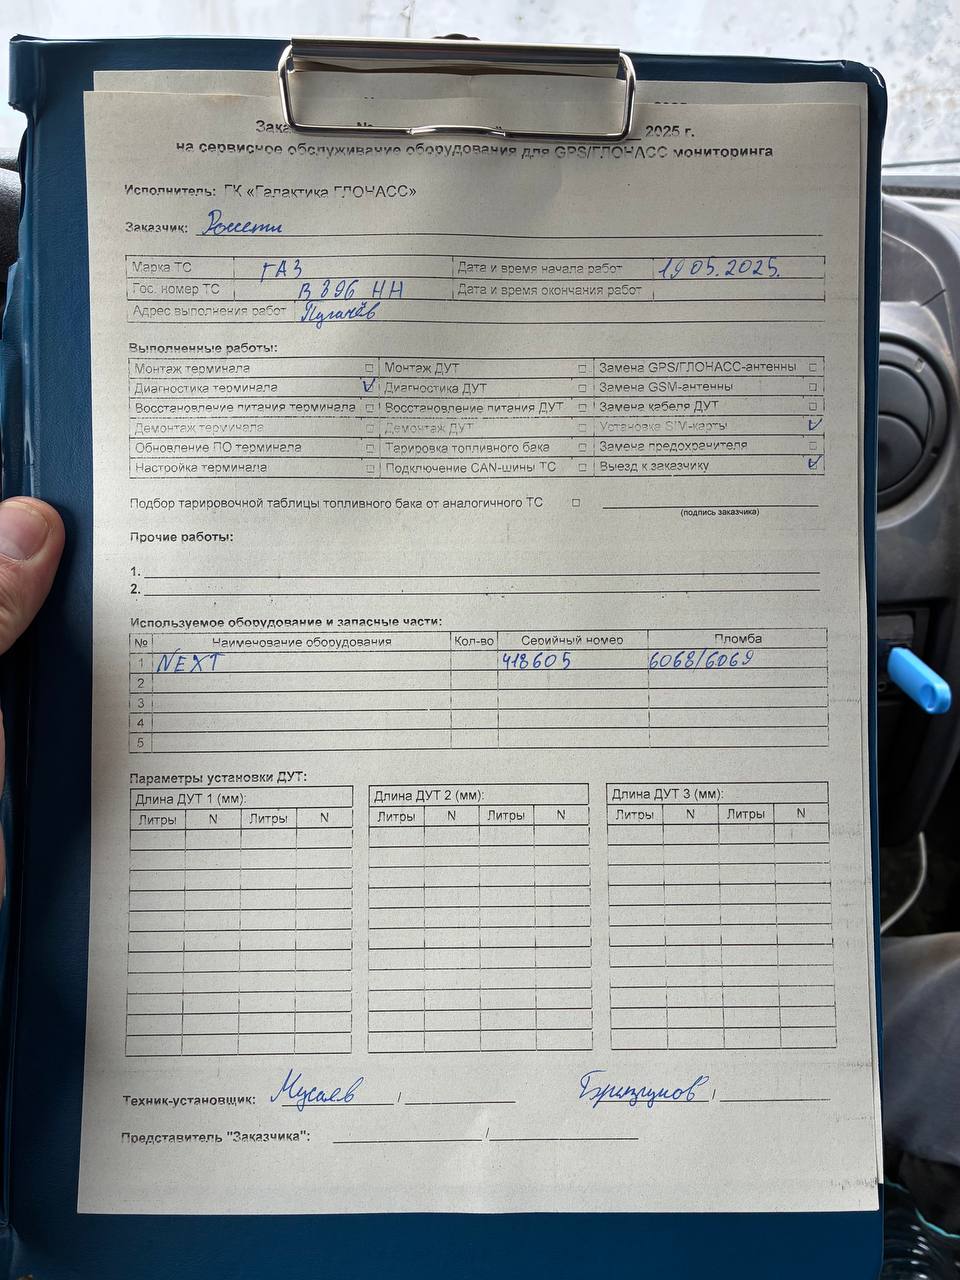 Зака № 2025 г.
на сервисное обслуживание оборудования для GPS/ГЛОНАСС мониторинга
Исполнитель: ГК «Галактика ГЛОНАСС»
Заказчик: Россети
Марка ТС ГАЗ Дата и время начала работ 19.05.2025.
Гос. номер ТС В 896 НН Дата и время окончания работ
Адрес выполнения работ Пугачёв
Выполненные работы:
Монтаж терминала ☐ Монтаж ДУТ ☐ Замена GPS/ГЛОНАСС-антенны ☐
Диагностика терминала ☑ Диагностика ДУТ ☐ Замена GSM-антенны ☐
Восстановление питания терминала ☐ Восстановление питания ДУТ ☐ Замена кабеля ДУТ ☐
Демонтаж терминала ☐ Демонтаж ДУТ ☐ Установка SIM-карты ☑
Обновление ПО терминала ☐ Тарировка топливного бака ☐ Замена предохранителя ☐
Настройка терминала ☐ Подключение CAN-шины ТС ☐ Выезд к заказчику ☑
Подбор тарировочной таблицы топливного бака от аналогичного ТС ☐
(подпись заказчика)
Прочие работы:
1.
2.
Используемое оборудование и запасные части:
№ Наименование оборудования Кол-во Серийный номер Пломба
1 NEXT 418605 6068/6069
2
3
4
5
Параметры установки ДУТ:
Длина ДУТ 1 (мм): Длина ДУТ 2 (мм): Длина ДУТ 3 (мм):
Литры N Литры N Литры N Литры N Литры N Литры N
Техник-установщик: Мусаев / /
Представитель "Заказчика": /